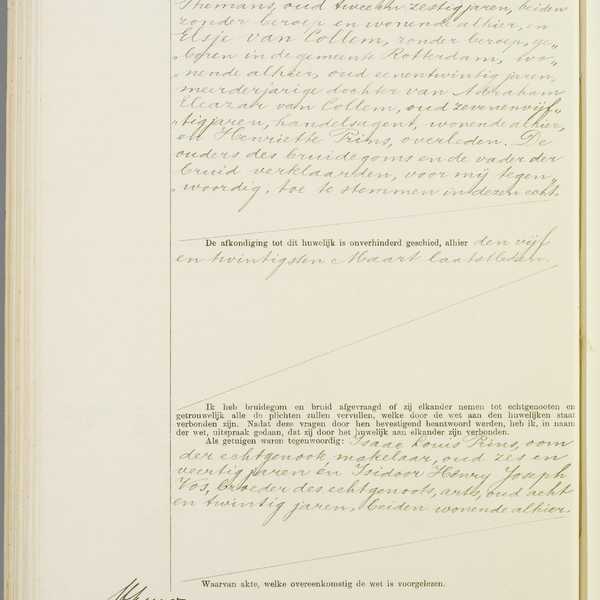 Themans, oud tweeën zestig jaren, beiden
zonder beroep en wonende alhier, en
Elsje van Collem, zonder beroep, ge„
„boren in de gemeente Rotterdam, wo„
„nende alhier, oud eenentwintig jaren,
meerderjarige dochter van Abraham
Eleazar van Collem, oud zevenenvijf„
„tig jaren, handelsagent, wonende alhier,
en Henriette Prins, overleden. De
ouders des bruidegoms en de vader der
bruid verklaarden, voor mij tegen„
„woordig, toe te stemmen in dezen echt.
De afkondiging tot dit huwelijk is onverhinderd geschied, alhier den vijf
en twintigsten Maart laatstleden.
Ik heb bruidegom en bruid afgevraagd of zij elkander nemen tot echtgenooten en
getrouwelijk alle de plichten zullen vervullen, welke door de wet aan den huwelijken staat
verbonden zijn. Nadat deze vragen door hen bevestigend beantwoord werden, heb ik, in naam
der wet, uitspraak gedaan, dat zij door het huwelijk aan elkander zijn verbonden.
Als getuigen waren tegenwoordig: Isaac Louis Prins, oom
der echtgenoot makelaar, oud zes en
veertig jaren en Isidoor Henry Joseph
Vos, broeder des echtgenoots, arts, oud acht
en twintig jaren, beiden wonende alhier.
Waarvan akte, welke overeenkomstig de wet is voorgelezen.